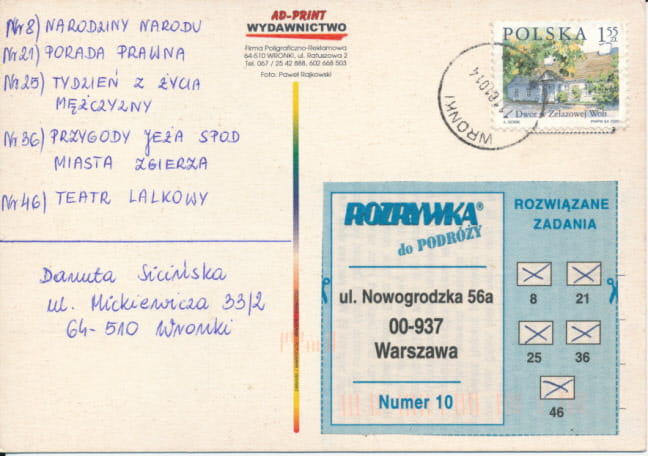 Nr 8) NARODZINY NARODU
Nr 21) PORADA PRAWNA
Nr 25) TYDZIEŃ Z ŻYCIA
MĘŻCZYZNY
Nr 36) PRZYGODY JEŻA SPOD
MIASTA ZGIERZA
Nr 46) TEATR LALKOWY
Danuta Sicińska
ul. Mickiewicza 33/2
64-510 Wronki
AD-PRINT
WYDAWNICTWO
Firma Poligraficzno-Reklamowa
64-510 WRONKI, ul. Ratuszowa 2
Tel. 067 / 25 42 888, 602 668 503
Foto: Paweł Rajkowski
WRONKI
POLSKA 1 55 ZŁ
Dwór w Żelazowej Woli
ROZRYWKA®
do PODRÓŻY
ul. Nowogrodzka 56a
00-937
Warszawa
Numer 10
ROZWIĄZANE
ZADANIA
8 21
25 36
46